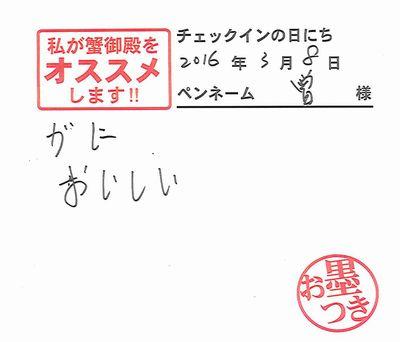 私が蟹御殿を
オススメ
します!!
チェックインの日にち
2016 年 3 月 8 日
ペンネーム 曽 様
がに
おいしい
お墨つき